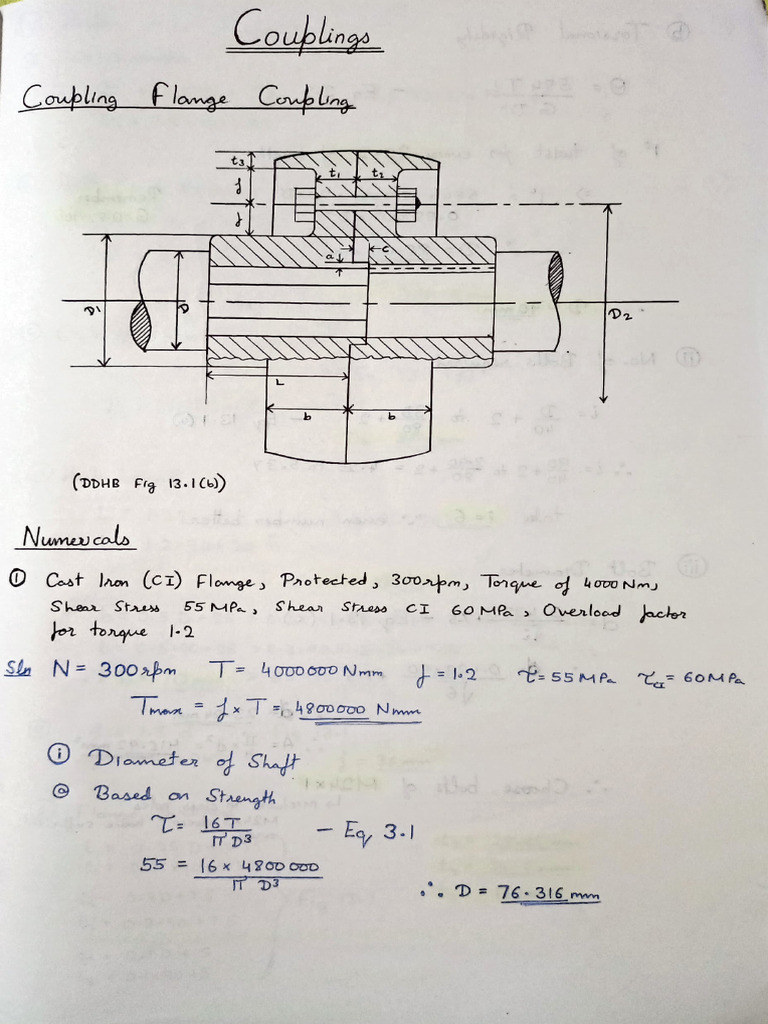 Couplings
Coupling Flange Coupling
t3
t1
t2
f
f
a
c
D1
D
D2
L
b
b
(DDHB Fig 13.1(b))
Numericals
① Cast Iron (CI) Flange, Protected, 300rpm, Torque of 4000Nm,
Shear Stress 55MPa, Shear Stress CI 60MPa, Overload factor
for torque 1.2
Sln N = 300rpm T = 4000000 Nmm f = 1.2 τ = 55MPa τCI = 60MPa
Tmax = f × T = 4800000 Nmm
ⓘ Diameter of Shaft
ⓐ Based on Strength
τ = 16T / ΠD³ – Eq 3.1
55 = 16 × 4800000 / Π D³
∴ D = 76.316 mm